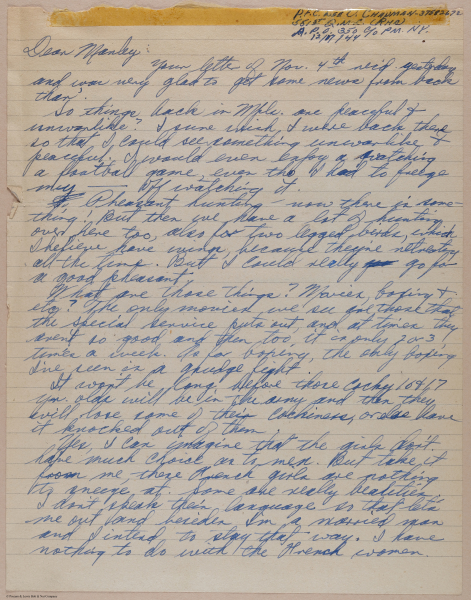 P.F.C. Lee C. Chapman - 37582272
A.P.O. 350 c/o P.M. N.Y.
12/17/44
Dear Manley:
Your letter of Nov. 4th rec'd yesterday
and was very glad to get some news from back
than'.
So things back in Mpls. are peaceful &
unwarlike? I sure wish I were back there
so that I could see something unwarlike &
peaceful. I would even enjoy a watching
a football game, even tho I had to freeze
my — off watching it.
Pheasant hunting – now there is some-
thing. But then we have a lot of hunting
over here too, also for two legged birds, which
I believe have wings, because they're retreating
all the time. But I could really go for
a good pheasant.
What are those things? Movies, boxing &
etc? The only movies we see are those that
the special service puts out, and at times they
arent so good, and then too, it is only 2 or 3
times a week. As for boxing, the only boxing
I've seen is a grudge fight.
It won't be long before those cocky 16 & 17
yr. olds will be in the army and then they
will lose some of their cockiness, or else have
it knocked out of them.
Yes, I can imagine that the girls don't
have much choice as to men. But take it
from me, these French girls are nothing
to sneeze at. Some are really beauties.
I don't speak their language so that lets
me out, and besides I'm a married man
and I intend to stay that way. I have
nothing to do with the French women.